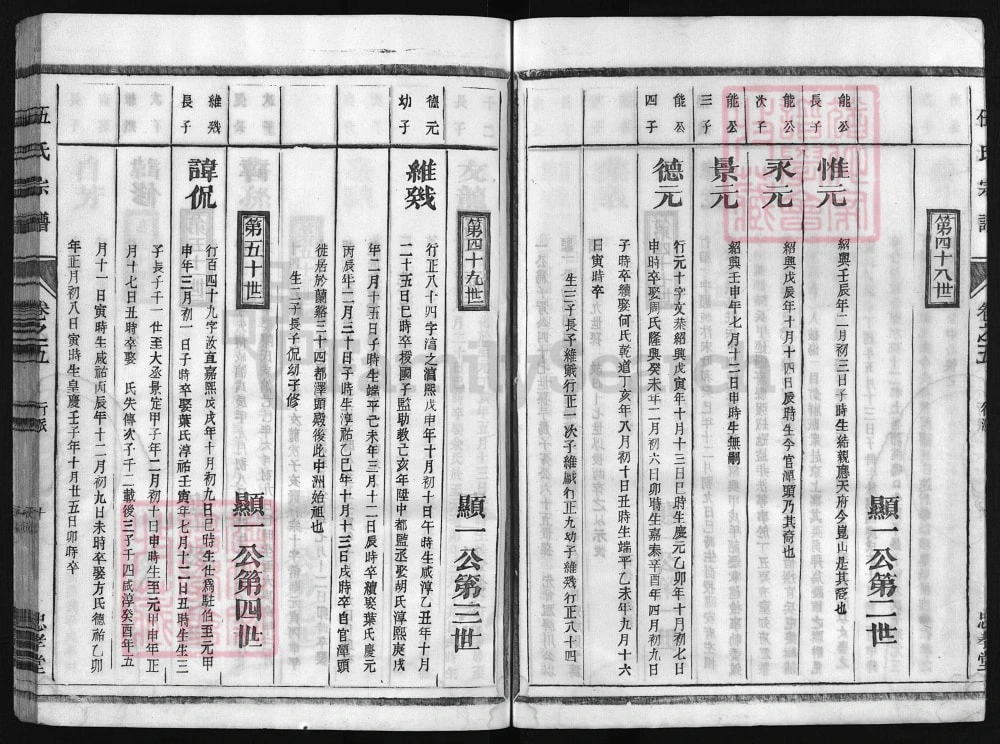 第四十八世
顯一公第二世
能公長子
惟元
紹興壬辰年二月初三日子時生結親應天府今崑山是其裔也
能公次子
永元
紹興戊辰年十月十四日辰時生今官潭頭乃其裔也
能公三子
景元
紹興壬申年七月十二日申時生無嗣
能公四子
德元
行元十字文葉紹興戊寅年十月十三日巳時生慶元乙卯年十月初七日
申時卒娶周氏隆興癸未年二月初六日卯時生嘉泰辛酉年四月初九日
子時卒續娶何氏乾道丁亥年八月初十日丑時生端平乙未年九月十六
日寅時卒
生三子長子維賤行正一次子維賦行正九幼子維殘行正八十四
第四十九世
顯一公第三世
德元幼子
維殘
行正八十四字滈之淳熙戊申年十月初十日午時生咸淳乙丑年十月
二十五日巳時卒授國子監助教乙亥年陞中都監丞娶胡氏淳熙庚戌
年二月十五日子時生端平己未年三月十二日辰時卒續娶葉氏慶元
丙辰年二月三十日子時生淳祐乙巳年十月十三日戌時卒自官潭頭
徙居於蘭谿三十四都澤頭殿後此中洲始祖也
生二子長子侃幼子修
第五十世
顯一公第四世
維殘長子
諱侃
行百四十九字汝直嘉熙戊戌年十月初九日巳時生仕爲駐伯至元甲
申年三月初一日子時卒娶葉氏淳祐壬寅年七月十二日丑時生生三
子長子千一世至大丞景定甲子年二月初十日申時生至元甲申年正
月十七日丑時卒娶 氏失傳次子千二載後三子千四咸淳癸酉年五
月十一日寅時生咸祐卤辰年十二月初九日未時卒娶方氏德祐乙卯
年正月初八日寅時生皇慶壬子年十月廿五日卯時卒
伍氏宗譜
卷之五
行派
十
忠孝堂